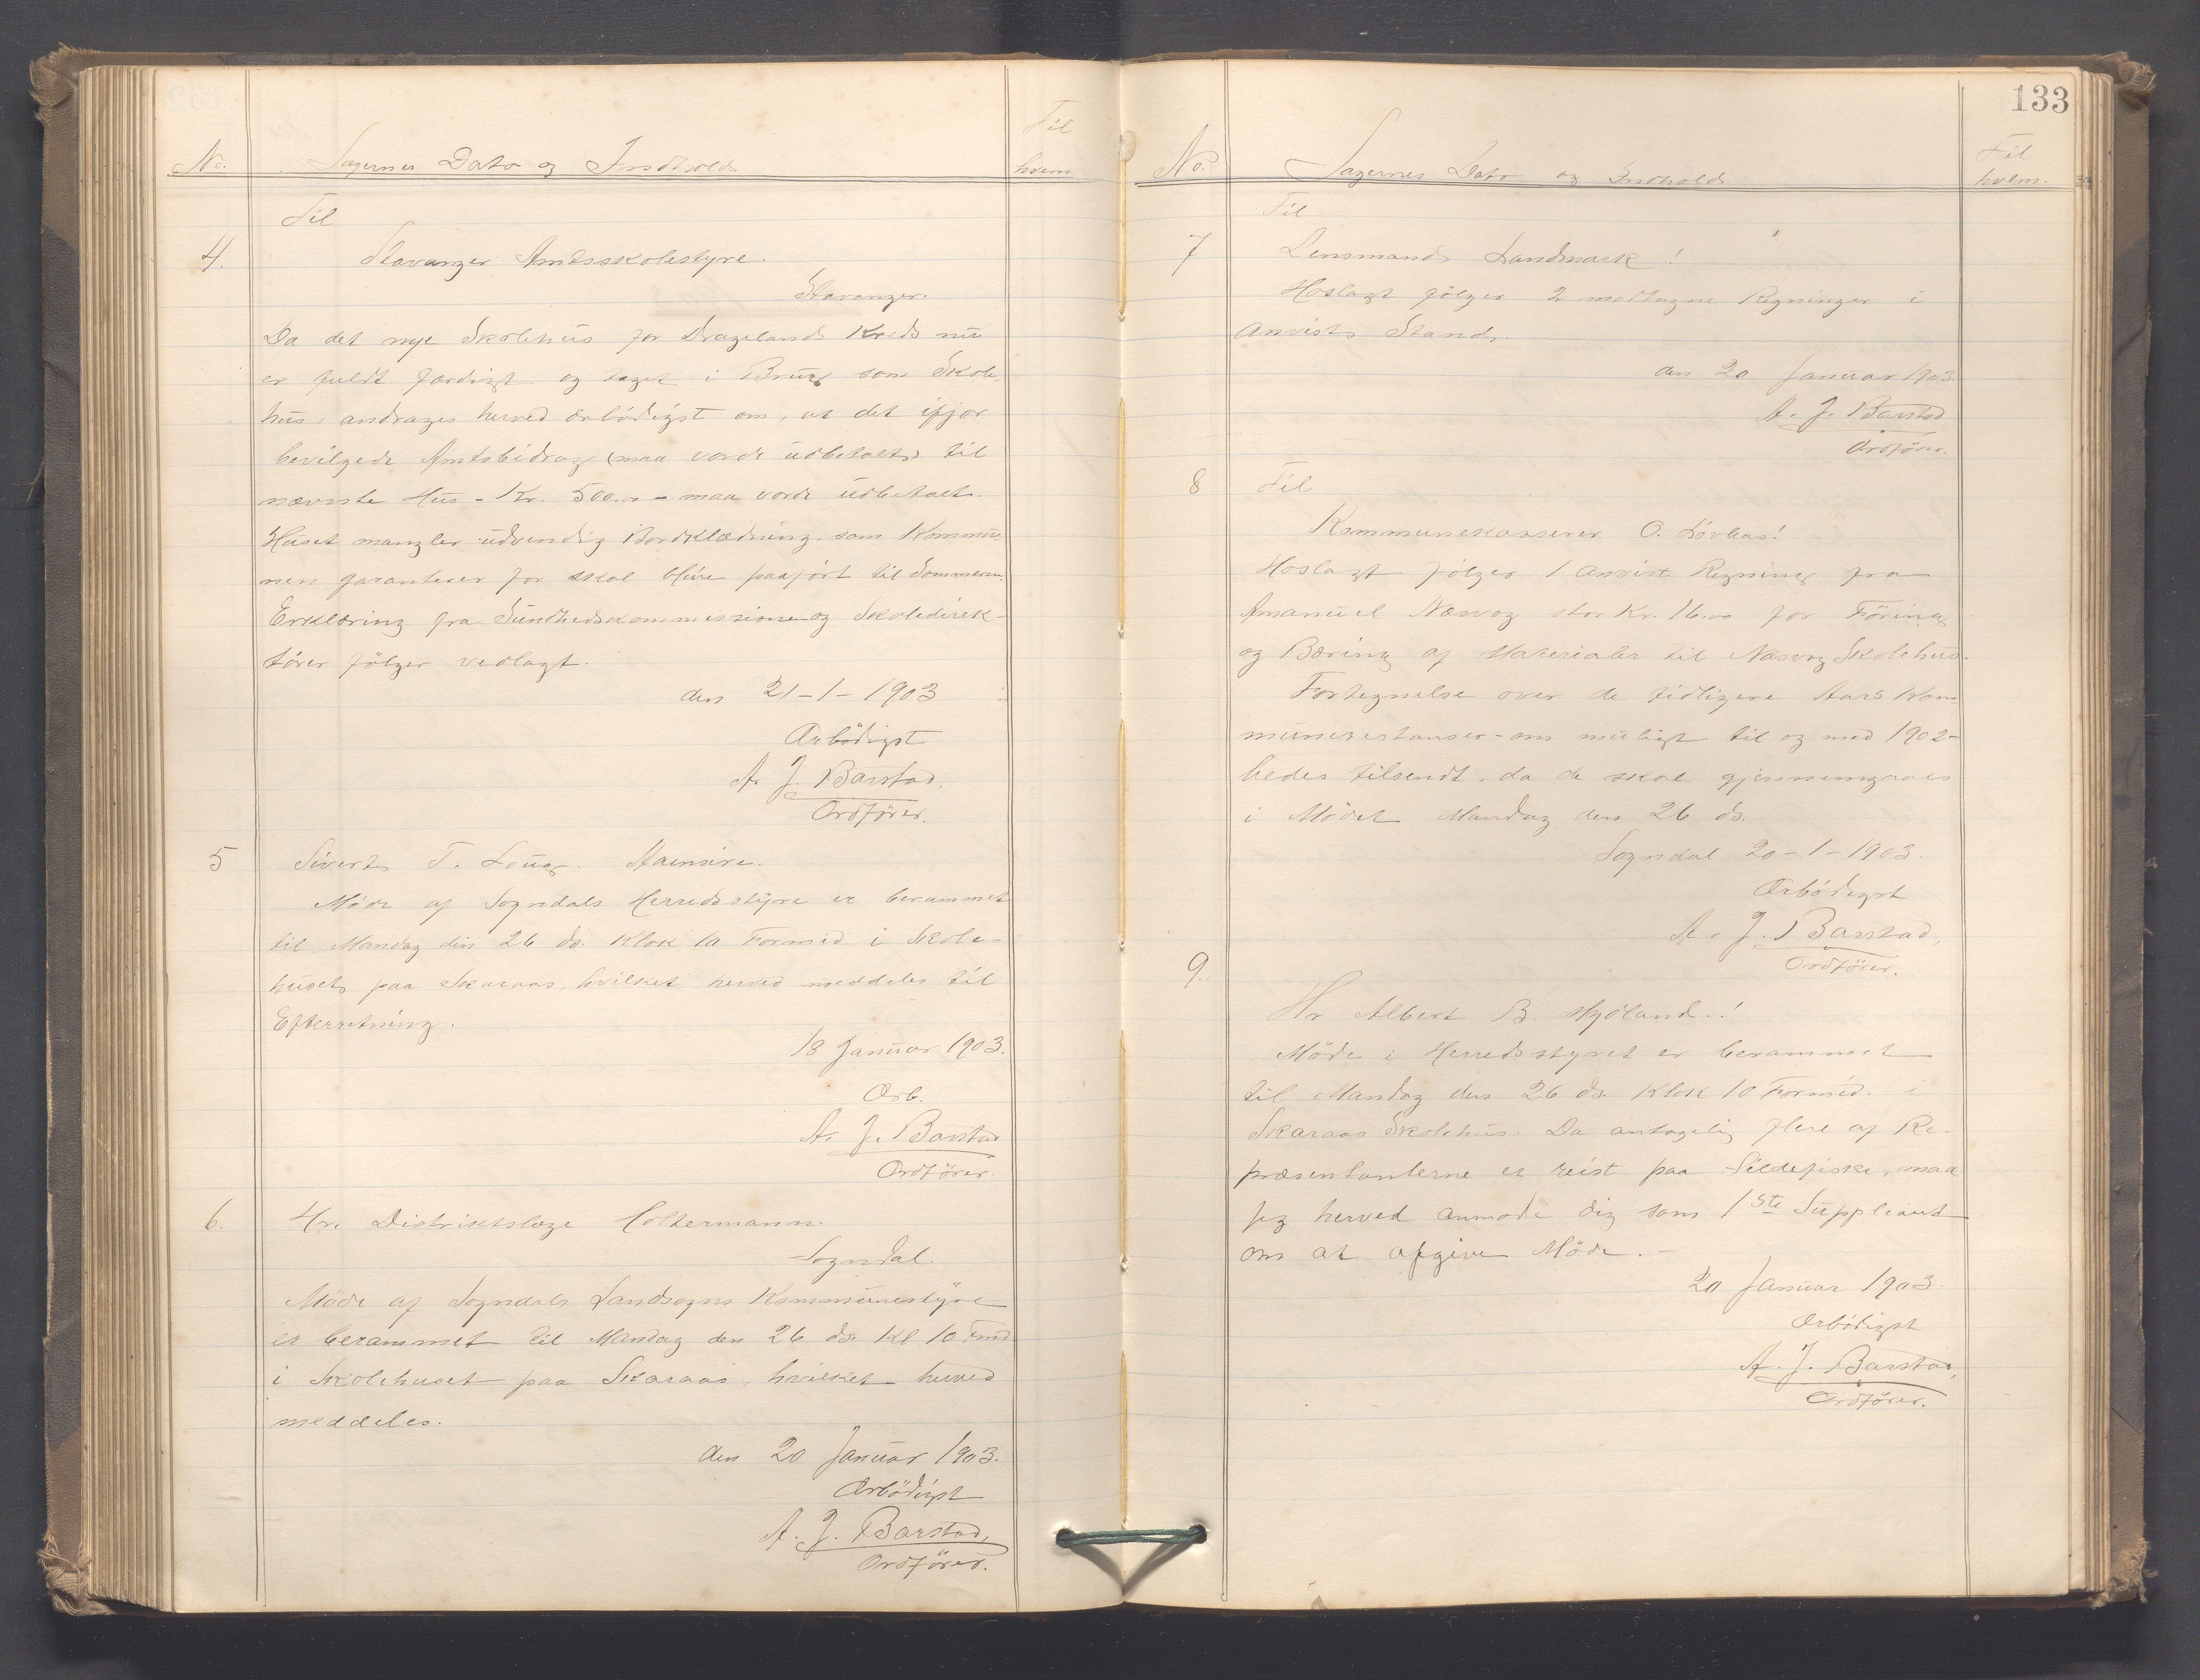 No. Sagernes Dato og Indhold Til hvem
Til
4. Stavanger Amtsskolestyre.
Stavanger.
Da det nye Skolehus for Dragelands Kreds nu
er fuldt færdigt og taget i Brug som Skole-
hus, andrages herved ærbödigst om, at det ifjor
bevilgede Amtsbidrag (maa vorde udbetalt) til
nævnte Hus - Kr. 500.00 - maa vorde udbetalt.
Huset mangler udvendig Bordklædning, som Kommu-
nen garanterer for skal blive paaført til Sommeren.
Erklæring fra Sundhedskommissionen og Skoledirek-
tören fölger vedlagt.
den 21-1-1903
Ærbödigst
A. J. Barstad.
Ordförer.
5 Sivert T. Loug.
Möde af Sogndals Herredsstyre er berammet
til Mandag den 26 ds. Klok 10 Formid i Skole-
huset paa Skaraas, hvilket herved meddeles til
Efterretning.
18 Januar 1903.
Ærb.
A. J. Barstad
Ordförer.
6. Hr. Distriktslæge Coltermann.
Sogndal.
Möde af Sogndals Landsogns Kommunestyre
er berammet til Mandag den 26 ds. Kl 10 Fmd
i Skolehuset paa Skaraas, hvilket herved
meddeles.
den 20 Januar 1903.
Ærbödigst
A. J. Barstad,
Ordförer.
133
No. Sagernes Dato og Indhold Til hvem.
Til
7 Lensmand Landmark!
Hoslagt fölger 2 modtagne Regninger i
anvist Stand.
den 20 Januar 1903.
A. J. Barstad
Ordförer.
8 Til
Kommunekasserer O. Lövaas!
Hoslagt fölger 1 anvist Regning fra
Amanuel Næsvog stor Kr. 16.00 for Föring
og Bæring af Materialer til Næsvog Skolehus.
Fortegnelse over de tidligere Aars Kom
munerestanser - om muligt til og med 1902 -
bedes tilsendt, da de skal gjennemgaaes
i Mödet Mandag den 26 ds.
Sogndal 20-1-1903.
Ærbödigst
A. J. Barstad,
Ordförer.
9. Hr Albert B. Mjöland.!
Möde i Herredsstyret er berammet
til Mandag den 26 ds. Klok 10 Formid. i
Skaraas Skolehus. Da antagelig flere af Re-
præsentanterne er reist paa Sildefiske, maa
jeg herved anmode dig som 1ste Suppleant
om at afgive Möde. -
20 Januar 1903.
Ærbödigst
A. J. Barstad,
Ordförer.